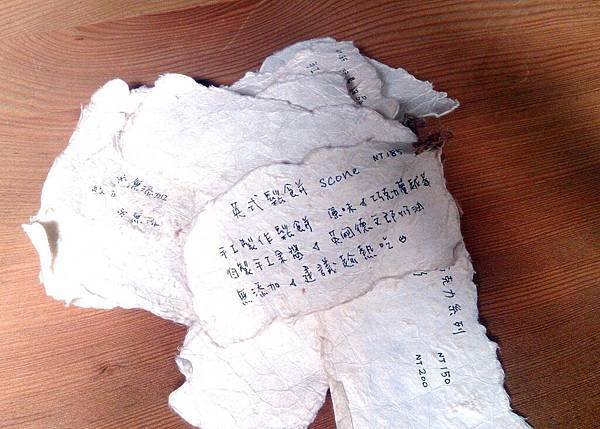 英式鬆餅 scone NT185
手工製作鬆餅 原味&巧克力蔓越莓
自製手工果醬 & 英國德文郡奶油
無添加 & 建議趁熱吃
※無添加
※無
克力系列
NT150
NT200